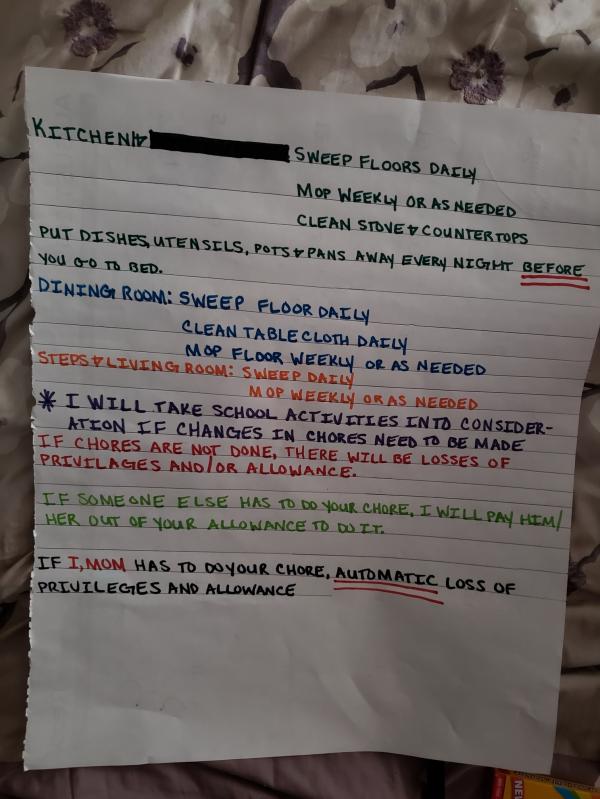 KITCHEN & SWEEP FLOORS DAILY
MOP WEEKLY OR AS NEEDED
CLEAN STOVE & COUNTERTOPS
PUT DISHES, UTENSILS, POTS & PANS AWAY EVERY NIGHT BEFORE
YOU GO TO BED.
DINING ROOM: SWEEP FLOOR DAILY
CLEAN TABLE CLOTH DAILY
MOP FLOOR WEEKLY OR AS NEEDED
STEPS & LIVING ROOM: SWEEP DAILY
MOP WEEKLY OR AS NEEDED
* I WILL TAKE SCHOOL ACTIVITIES INTO CONSIDER-
ATION IF CHANGES IN CHORES NEED TO BE MADE
IF CHORES ARE NOT DONE, THERE WILL BE LOSSES OF
PRIVILAGES AND/OR ALLOWANCE.
IF SOMEONE ELSE HAS TO DO YOUR CHORE, I WILL PAY HIM/
HER OUT OF YOUR ALLOWANCE TO DO IT.
IF I, MOM HAS TO DO YOUR CHORE, AUTOMATIC LOSS OF
PRIVILEGES AND ALLOWANCE
NE